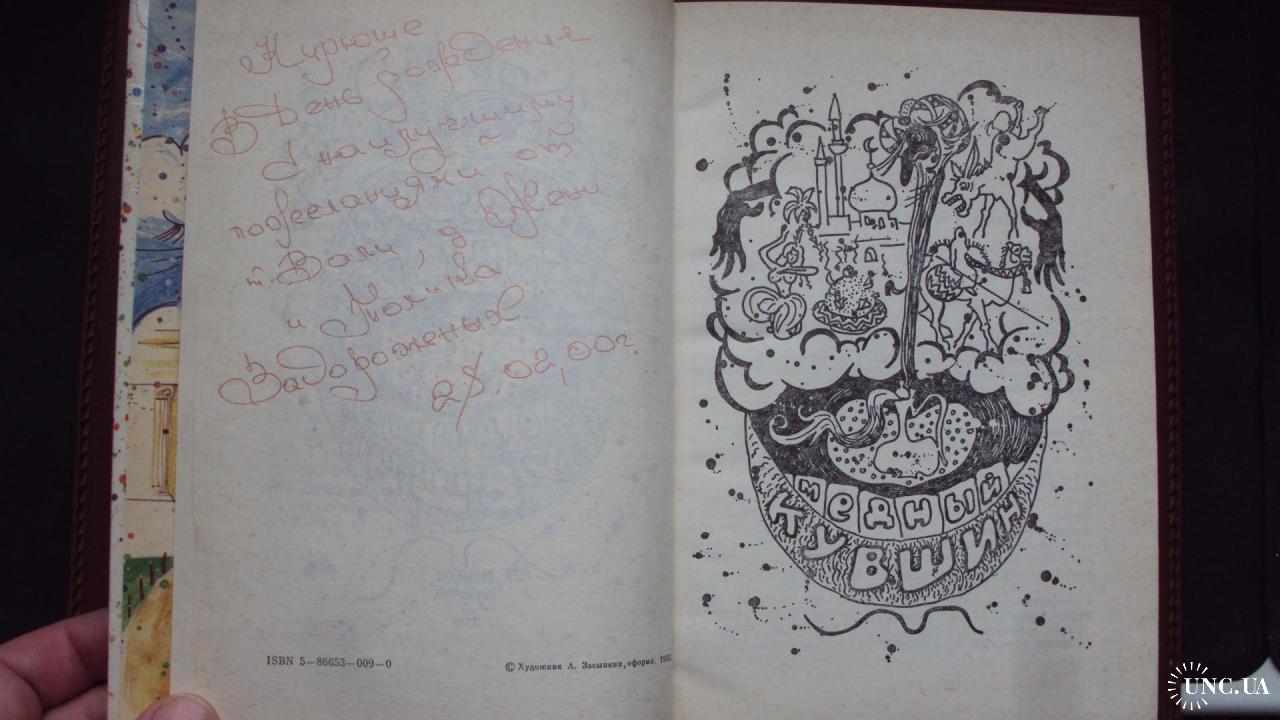 Кирюше
В День рождения
с наилучшими
пожеланиями от
т. Вали, д Жени
и Толика
Задорожных.
25.02,00г.
ISBN 5—86653—009—0
© Художник А. Засыпкин, оформ.
медный
кувшин
UNC.UA